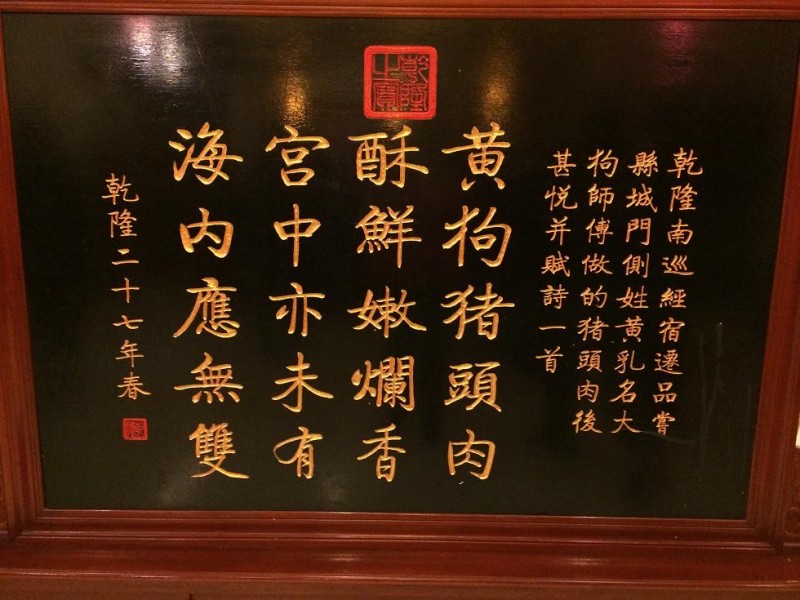 乾隆之寶
乾隆南巡經宿遷品嘗
縣城門側姓黄乳名大
狗師傅做的猪頭肉後
甚悦并賦詩一首
黄狗猪頭肉
酥鮮嫩爛香
宫中亦未有
海内應無雙
乾隆二十七年春